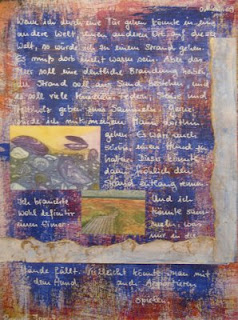 Wenn ich durch eine Tür gehen könnte in eine
andere Welt, einen anderen Ort auf dieser
Welt, so würde ich zu einem Strand gehen.
Es muss dort nicht warm sein. Aber das
Meer soll eine deutliche Brandung haben,
der Strand soll aus Sand bestehen, und
es soll viele Muscheln, Federn, Steine und
geben zum Sammeln. Gerne
würde ich mit meinem Hund dorthin
gehen. Es wäre auch
schön, einen Hund zu
haben. Dieser könnte
dann fröhlich den
Strand entlang rennen.
Ich bräuchte
wohl definitiv
einen Eimer.
Und ich
könnte sam-
meln, was
mir in die
Hände fällt. Vielleicht könnte man mit
dem Hund auch Apportieren
spielen.